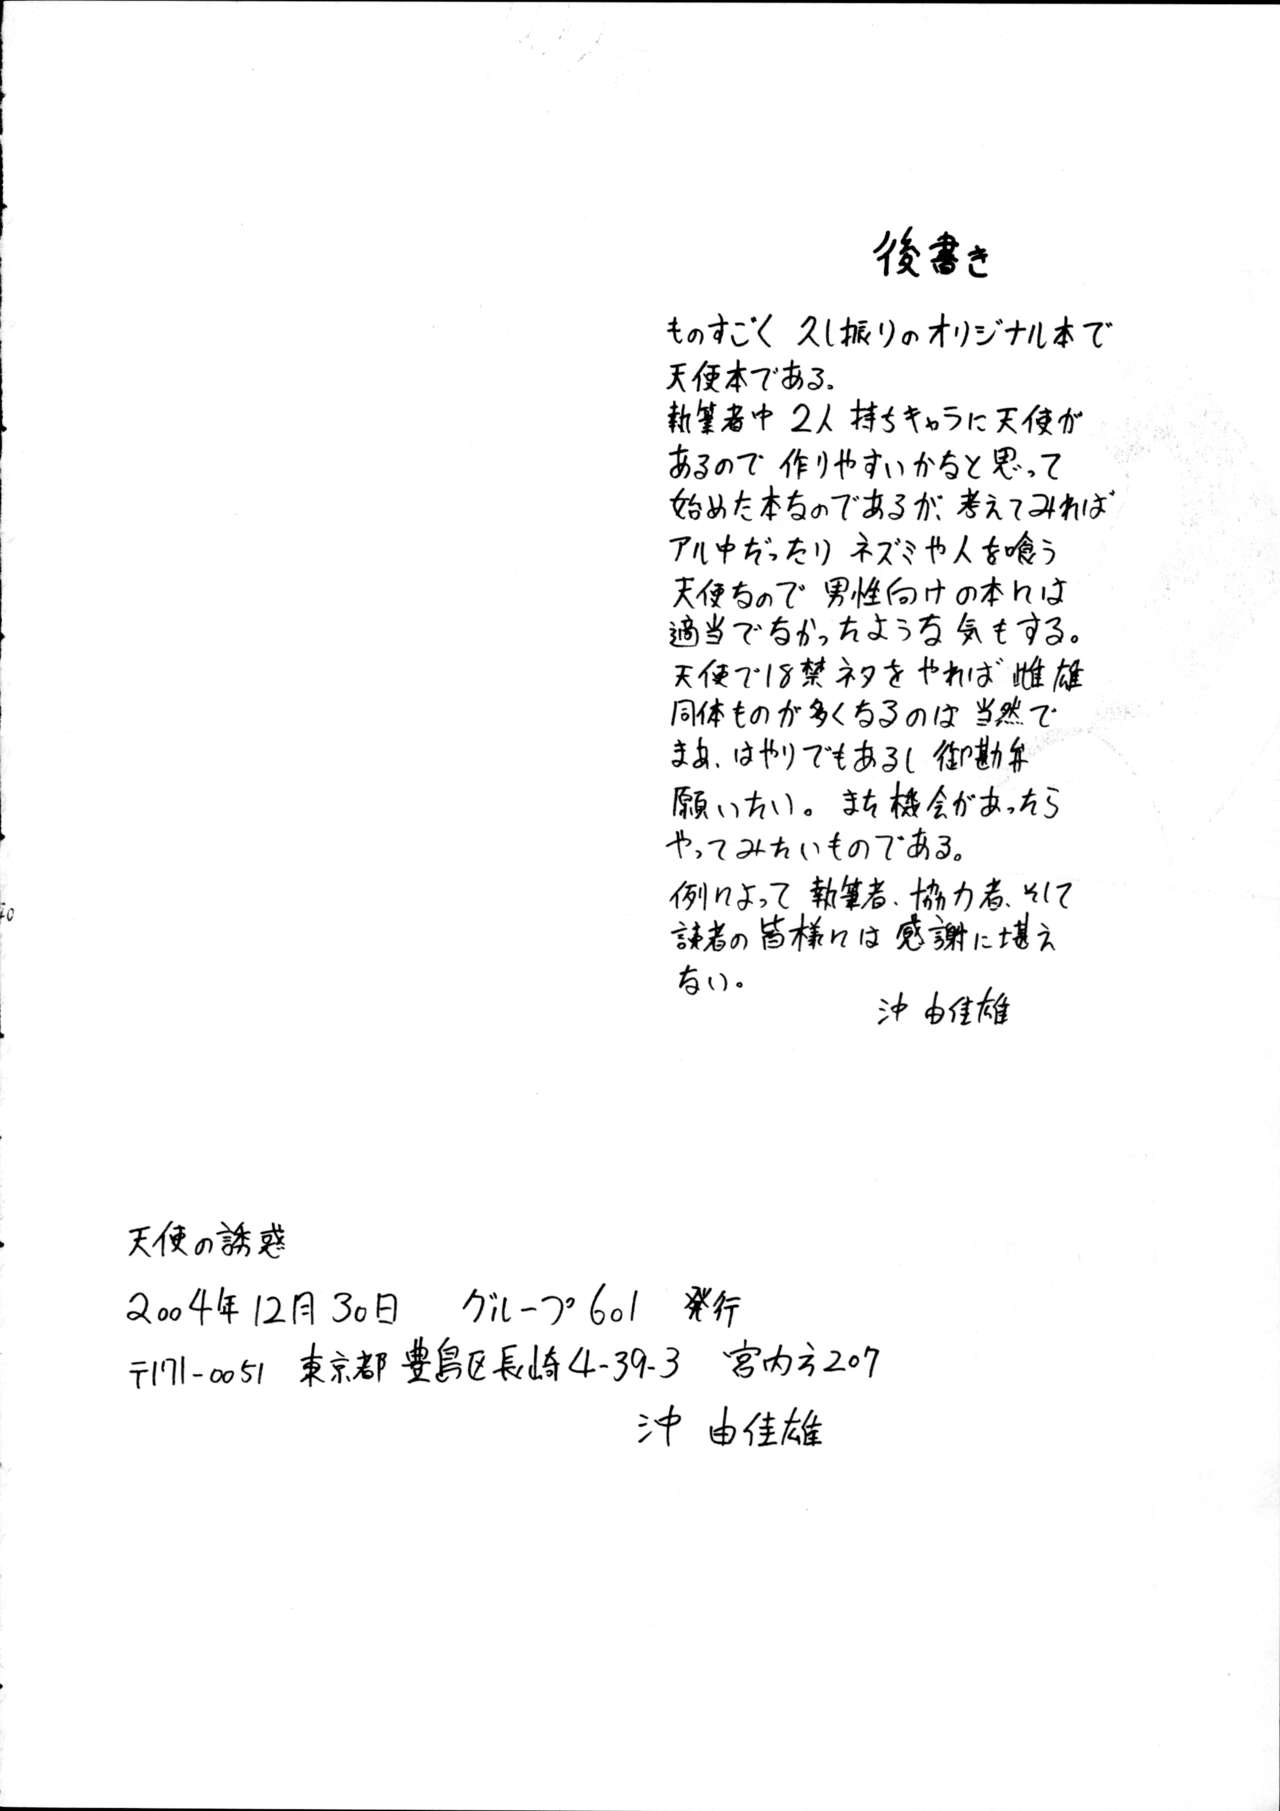 後書き
ものすごく 久し振りのオリジナル本で
天使本である。
執筆者中 2人 持ちキャラに天使が
あるので 作りやすいかなと思って
始めた本なのであるが、考えてみれば
アル中だったり ネズミや人を喰う
天使なので 男性向けの本には
適当でなかったような気もする。
天使で18禁ネタをやれば 雌雄
同体ものが多くなるのは当然で
まあ、はやりでもあるし 御勘弁
願いたい。また機会があったら
やってみたいものである。
例によって 執筆者、協力者、そして
読者の皆様には 感謝に堪え
ない。
沖 由佳雄
天使の誘惑
2004年12月30日 グループ601 発行
〒171-0051 東京都豊島区長崎4-39-3 宮内方207
沖 由佳雄